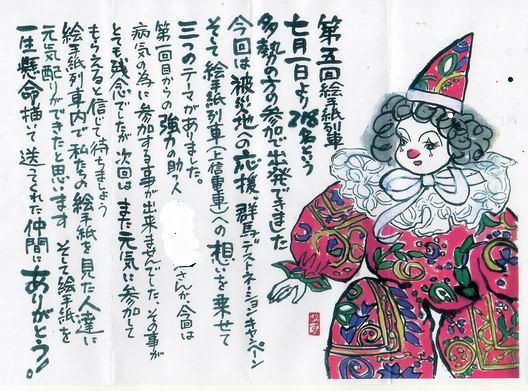 第五回絵手紙列車
七月一日より218名という
多勢の方の参加で出発できました
今回は被災地への応援。群馬デストネーションキャンペーン
そして絵手紙列車(上信電車)への想いを乗せて
三つのテーマがありました。
第一回目からの強力の助っ人 さんが、今回は
病気の為に参加する事が出来ませんでした。その事が
とても残念でしたが次回はまた元気に参加して
もらえると信じて待ちましょう
絵手紙列車内で私たちの絵手紙を見た人達に
元気配りができたと思います そして絵手紙を
一生懸命描いて送ってくれた仲間にありがとう!。